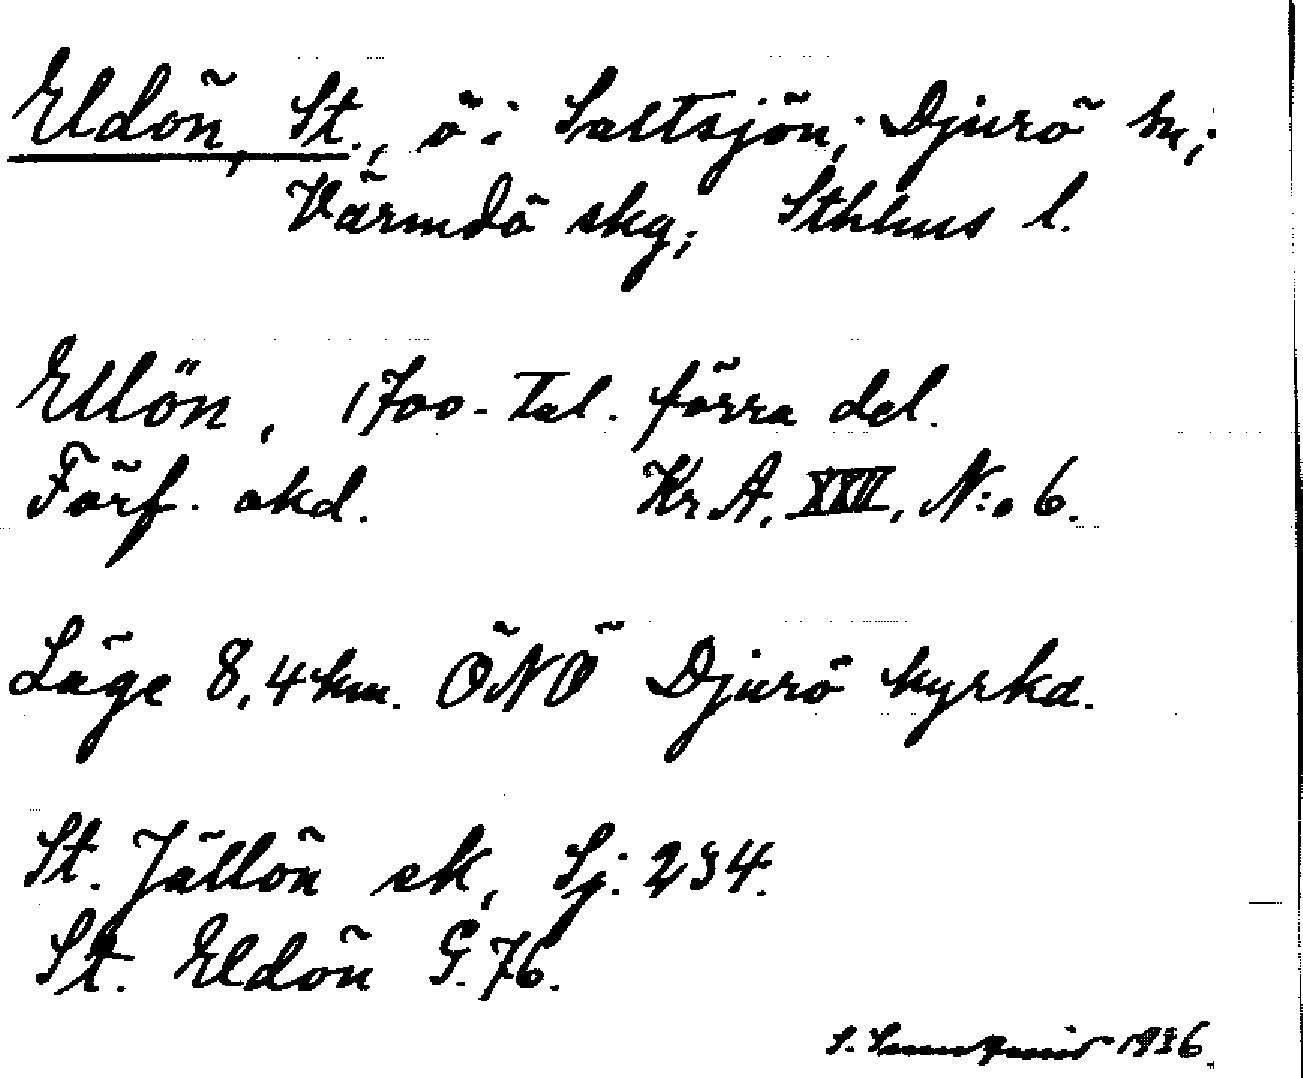 Eldön, St., ö i Saltsjön; Djurö sn;
Värmdö skg; Sthlms l.
Ellön, 1700-tal. förra del.
Förf. okd. Kr.A. XXII, N:o 6.
Läge 8,4 km. ÖNÖ Djurö kyrka.
St. Jällön sk, Sj. 234.
St. Eldön G. 76.
1936